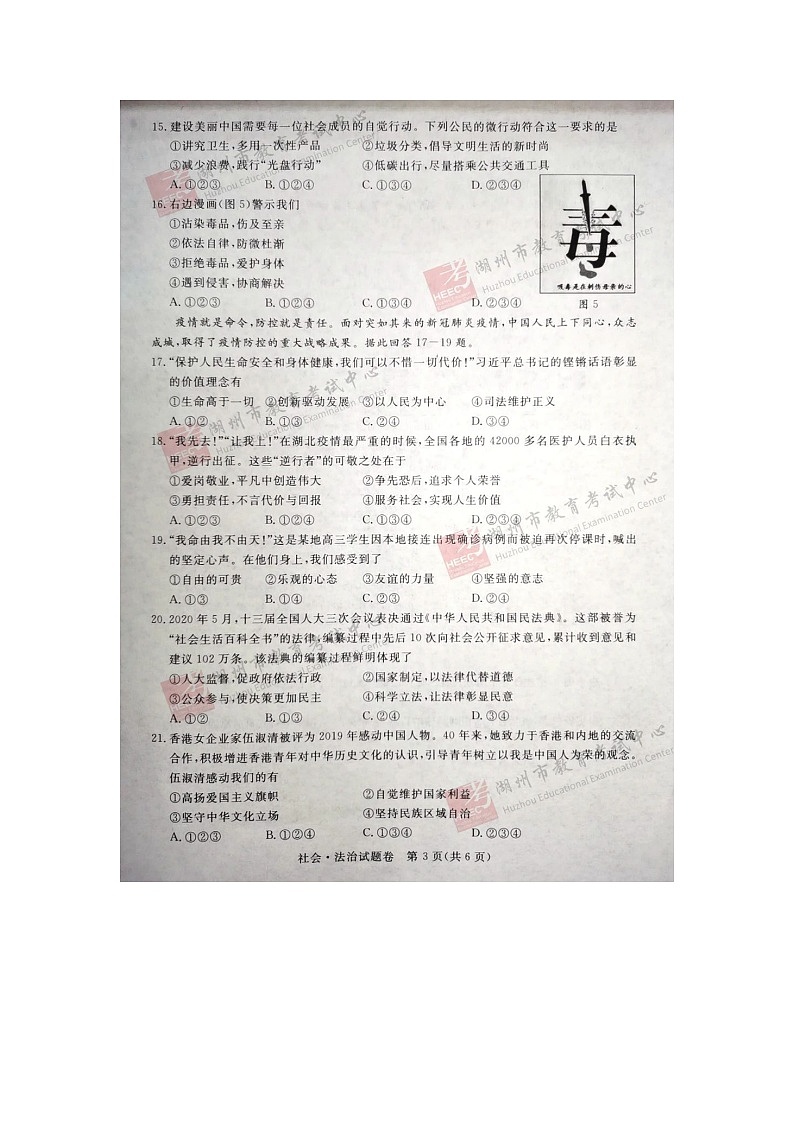 15. 建设美丽中国需要每一位社会成员的自觉行动。下列公民的微行动符合这一要求的是
①讲究卫生,多用一次性产品 ②垃圾分类,倡导文明生活的新时尚
③减少浪费,践行“光盘行动” ④低碳出行,尽量搭乘公共交通工具
A. ①②③ B. ①②④ C. ①③④ D. ②③④
16. 右边漫画(图 5)警示我们
①沾染毒品,伤及至亲
②依法自律,防微杜渐
③拒绝毒品,爱护身体
④遇到侵害,协商解决
A. ①②③ B. ①②④ C. ①③④ D. ②③④
毒
吸毒是在刺伤母亲的心
图 5
疫情就是命令,防控就是责任。面对突如其来的新冠肺炎疫情,中国人民上下同心,众志
成城,取得了疫情防控的重大战略成果。据此回答 17—19 题。
17. “保护人民生命安全和身体健康,我们可以不惜一切代价!”习近平总书记的铿锵话语彰显
的价值理念有
①生命高于一切 ②创新驱动发展 ③以人民为中心 ④司法维护正义
A. ①② B. ①③ C. ②④ D. ③④
18. “我先去!”“让我上!”在湖北疫情最严重的时候,全国各地的 42000 多名医护人员白衣执
甲,逆行出征。这些“逆行者”的可敬之处在于
①爱岗敬业,平凡中创造伟大 ②争先恐后,追求个人荣誉
③勇担责任,不言代价与回报 ④服务社会,实现人生价值
A. ①②③ B. ①②④ C. ①③④ D. ②③④
19. “我命由我不由天!”这是某地高三学生因本地接连出现确诊病例而被迫再次停课时,喊出
的坚定心声。在他们身上,我们感受到了
①自由的可贵 ②乐观的心态 ③友谊的力量 ④坚强的意志
A. ①③ B. ①④ C. ②③ D. ②④
20. 2020 年 5 月,十三届全国人大三次会议表决通过《中华人民共和国民法典》。这部被誉为
“社会生活百科全书”的法律,编纂过程中先后 10 次向社会公开征求意见,累计收到意见和
建议 102 万条。该法典的编纂过程鲜明体现了
①人大监督,促政府依法行政 ②国家制定,以法律代替道德
③公众参与,使决策更加民主 ④科学立法,让法律彰显民意
A. ①② B. ①③ C. ②④ D. ③④
21. 香港女企业家伍淑清被评为 2019 年感动中国人物。40 年来,她致力于香港和内地的交流
合作,积极增进香港青年对中华历史文化的认识,引导青年树立以我是中国人为荣的观念。
伍淑清感动我们的有
①高扬爱国主义旗帜 ②自觉维护国家利益
③坚守中华文化立场 ④坚持民族区域自治
A. ①②③ B. ①②④ C. ①③④ D. ②③④
社会·法治试题卷 第 3 页(共 6 页)
考 HEEC 湖州市教育考试中心
Huzhou Educational Examination Center
考 HEEC 湖州市教育考试中心
Huzhou Educational Examination Center
考 HEEC 湖州市教育考试中心
Huzhou Educational Examination Center
考 HEEC 湖州市教育考试中心
Huzhou Educational Examination Center
考 HEEC 湖州市教育考试中心
Huzhou Educational Examination Center
考 HEEC 湖州市教育考试中心
Huzhou Educational Examination Center